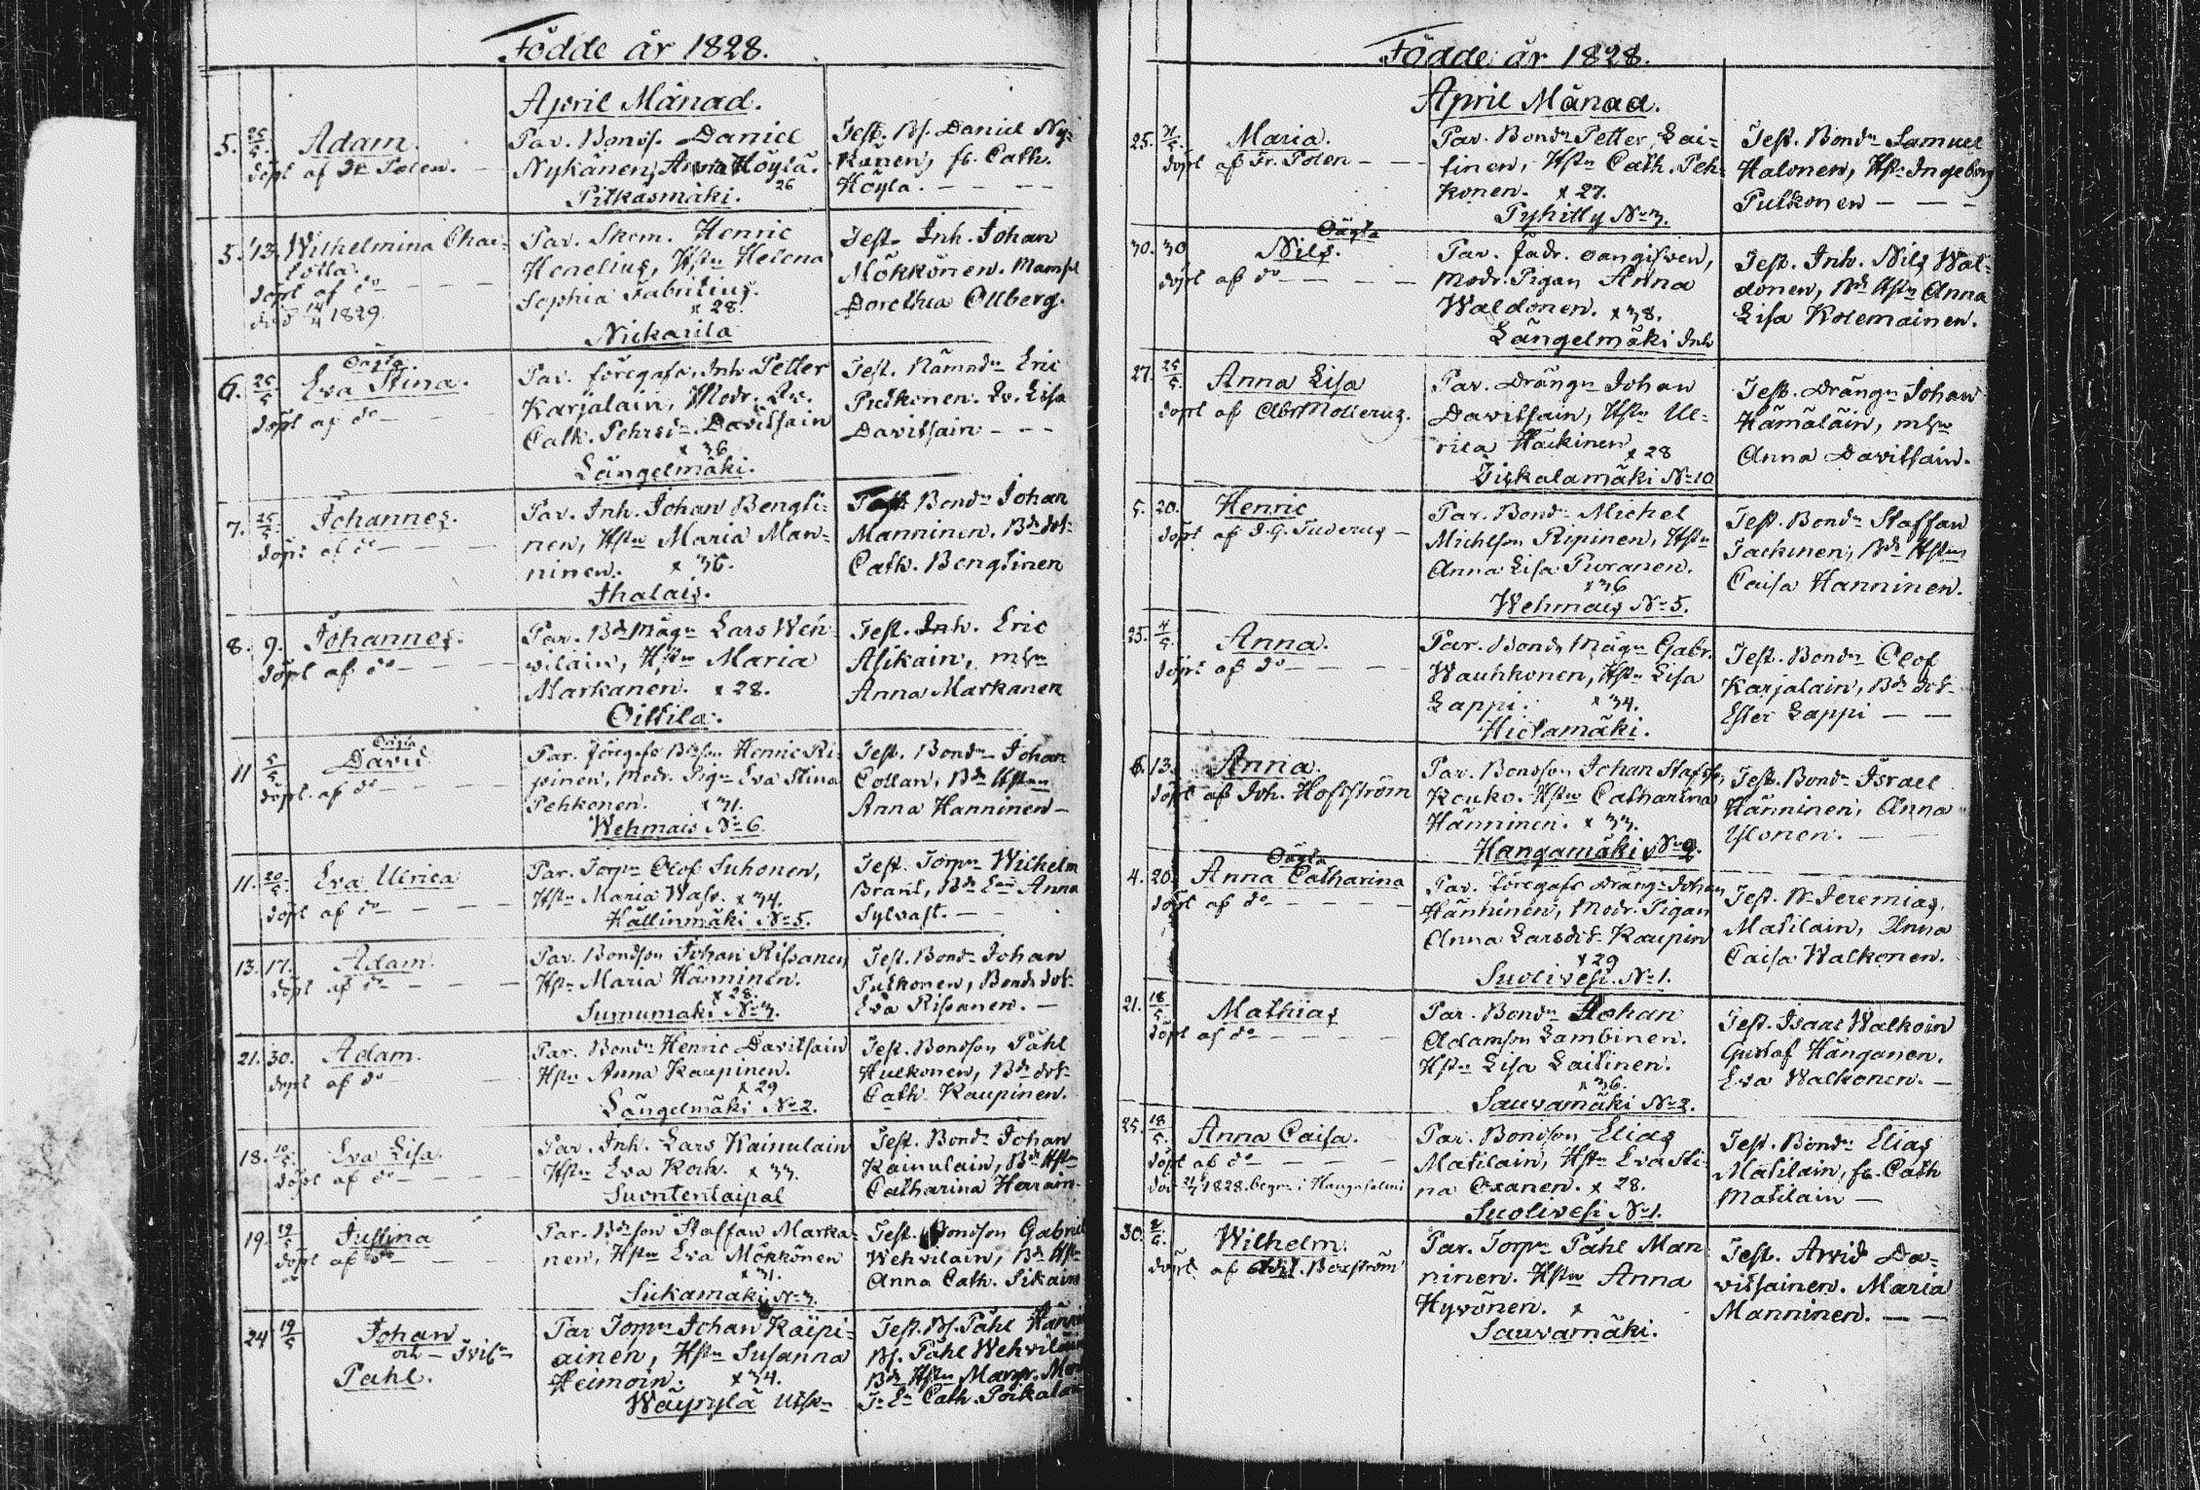 Födde år 1828.
April Månad.
5. 25/5. Adam.
döpt af Fr Polen. —
Par. Bonds. Daniel
Nykänen, Anna Höylä.
26
Pitkäsmäki.
Test. Bs. Daniel Ny-
känen, fl. Cath.
Höylä. — — —
5. 13. Wilhelmina Char-
lotta.
döpt af do — — —
död 14/4 1829.
Par. Skom. Henric
Henelius, Hstn Helena
Sophia Fabritius.
x 28.
Nickarila
Test. Inh. Johan
Mökkönen. Mamsl
Dorethea Ollberg.
6. 25/5 Oägta. Eva Stina.
döpt af do —
Par. föregafs. Inh. Petter
Karjalain, Modr. Enk.
Cath. Pehrsdr Davitsain
x 36
Längelmäki.
Test. Nämndn Eric
Pulkonen. Enk. Lisa
Davitsain — — —
7. 25/5. Johannes.
döpt af do — — —
Par. Inh. Johan Bengti-
nen, Hstn Maria Man-
ninen. x 36.
Ihalais.
Test. Bondn Johan
Manninen. Bds dot-
Cath. Bengtinen
8. 9. Johannes.
döpt af do — — —
Par. Bds Mågn Lars Weh-
vilain, Hstn Maria
Markanen. x 28.
Oittila.
Test. Inh. Eric
Asikain, msn
Anna Markanen
11 5/5. Oägta David
döpt af do — — — —
Par. föregafs Bdsson Henric Ri-
pinen, modr. Pign Eva Stina
Pehkonen. x 31.
Wehmais No 6.
Test. Bondn Johan
Collan, Bds Hstrun
Anna Hanninen —
11. 20/5. Eva Ulrica
döpt af do — — — —
Par. Torpn Olof Suhonen,
Hstn Maria Wass. x 34.
Hällinmäki No 5.
Test. Torpn Wilhelm
Brant, Bds Enn Anna
Sylvast. — —
13. 17. Adam.
döpt af do — — —
Par. Bondson Johan Rissanen
Hstn Maria Hänninen.
x 28.
Sumumäki No 3.
Test. Bondn Johan
Pulkonen, Bonds dot-
Eva Rissanen. —
21. 30. Adam.
döpt af do — —
Par. Bondn Henric Davitsain
Hstn Anna Kaupinen.
x 29
Längelmäki No 2.
Test. Bondson Påhl
Hulkonen, Bds dot-
Cath. Kaupinen.
18. 10/5. Eva Lisa.
döpt af do — — — —
Par. Inh. Lars Kainulain
Hstn Eva Kork. x 33
Suontentaipal
Test. Bondn Johan
Kainulain, Bds Hstn
Catharina Herrain-
19. 19/5 Justina
döpt af do — — —
Par. Bdsson Staffan Marka-
nen, Hstn Eva Mökkönen
x 31.
Siikamäki No 3.
Test. Bondson Gabriel
Wehvilain, Bds Hstn
Anna Cath. Sikain
24 19/5 Johan
och — Tvill-
Pahl.
Par Torpn Johan Käipi-
äinen, Hstn Susanna
Heimoin. x 34.
Wäyrylä Utskn
Test. Bs. Påhl Hänni
Bs. Påhl Wehvilain
Bds Hstn Margr. Mar
Cath. Poikalai
Födde år 1828.
April Månad.
25. 31/5. Maria.
döpt af Fr. Polen — — —
Par. Bondn Petter Lai-
tinen, Hstn Cath. Peh-
konen. x 27.
Pyhitty No 3.
Test. Bondn Samuel
Halonen, Hstn Ingeborg
Pulkonen — — —
30. 30 Oägta Nils.
döpt af do — — — —
Par. Fadr. oangifven,
Modr. Pigan Anna
Waldonen. x 38.
Längelmäki Inh
Test. Inh. Nils Wal-
donen, Bds Hstn Anna
Lisa Kolemainen.
27. 25/5. Anna Lisa
döpt af Abr Mollerus.
Par. Drängn Johan
Davitsain, Hstn Ul-
rica Häckinen
x 28
Tiskalamäki No 10
Test. Drängn Johan
Hämäläin, msn
Anna Davitsain.
5. 20. Henric
döpt af J. G. Tuderus —
Par. Bondn Michel
Michlson Ripinen, Hstn
Anna Lisa Puranen.
x 36
Wehmais No 5.
Test. Bondn Staffan
Jackinen, Bds Hstrun
Caisa Hanninen.
25. 4/5. Anna.
döpt af do — — — —
Par. Bonds Mågn Gabr.
Wauhkonen, Hstn Lisa
Lappi. x 34.
Hietamäki.
Test. Bondn Olof
Karjalain, Bds dot-
Ester Lappi — —
6. 13. Anna.
döpt af Joh. Hoffström
Par. Bondson Johan Stafsson
Kouko. Hstn Catharina
Hänninen. x 33.
Hangamäki No 9.
Test. Bondn Israel
Hänninen, Anna
Ylönen. — —
4. 20. Oägta Anna Catharina
döpt af do — — — — —
Par. föregafs Drängn Johan
Hänninen, Modr. Pigan
Anna Larsdot- Kaupin
x 29
Suolivesi No 1.
Test. Bn Jeremias
Matilain, Anna
Caisa Walkonen.
21. 18/5. Mathias
döpt af do — — — —
Par. Bondn Johan
Adamson Lambinen.
Hstn Lisa Laitinen.
x 36.
Sauvamäki No 2.
Test. Isaac Walkoin
Gustaf Hänganen.
Eva Walkonen. —
25. 18/5. Anna Caisa.
döpt af do — — — —
1828. begr. i Hangasalmi
Par. Bondson Elias
Matilain, Hstn Eva Sti-
na Oxanen. x 28.
Suolivesi No 1.
Test. Bondn Elias
Matilain, fl. Cath
Matilain —
30. 2/6. Wilhelm.
döpt af Boxström
Par. Torpn Påhl Man-
ninen. Hstn Anna
Hyvönen. x
Sauvamäki.
Test. Arvid Da-
vitsainen. Maria
Manninen. — —